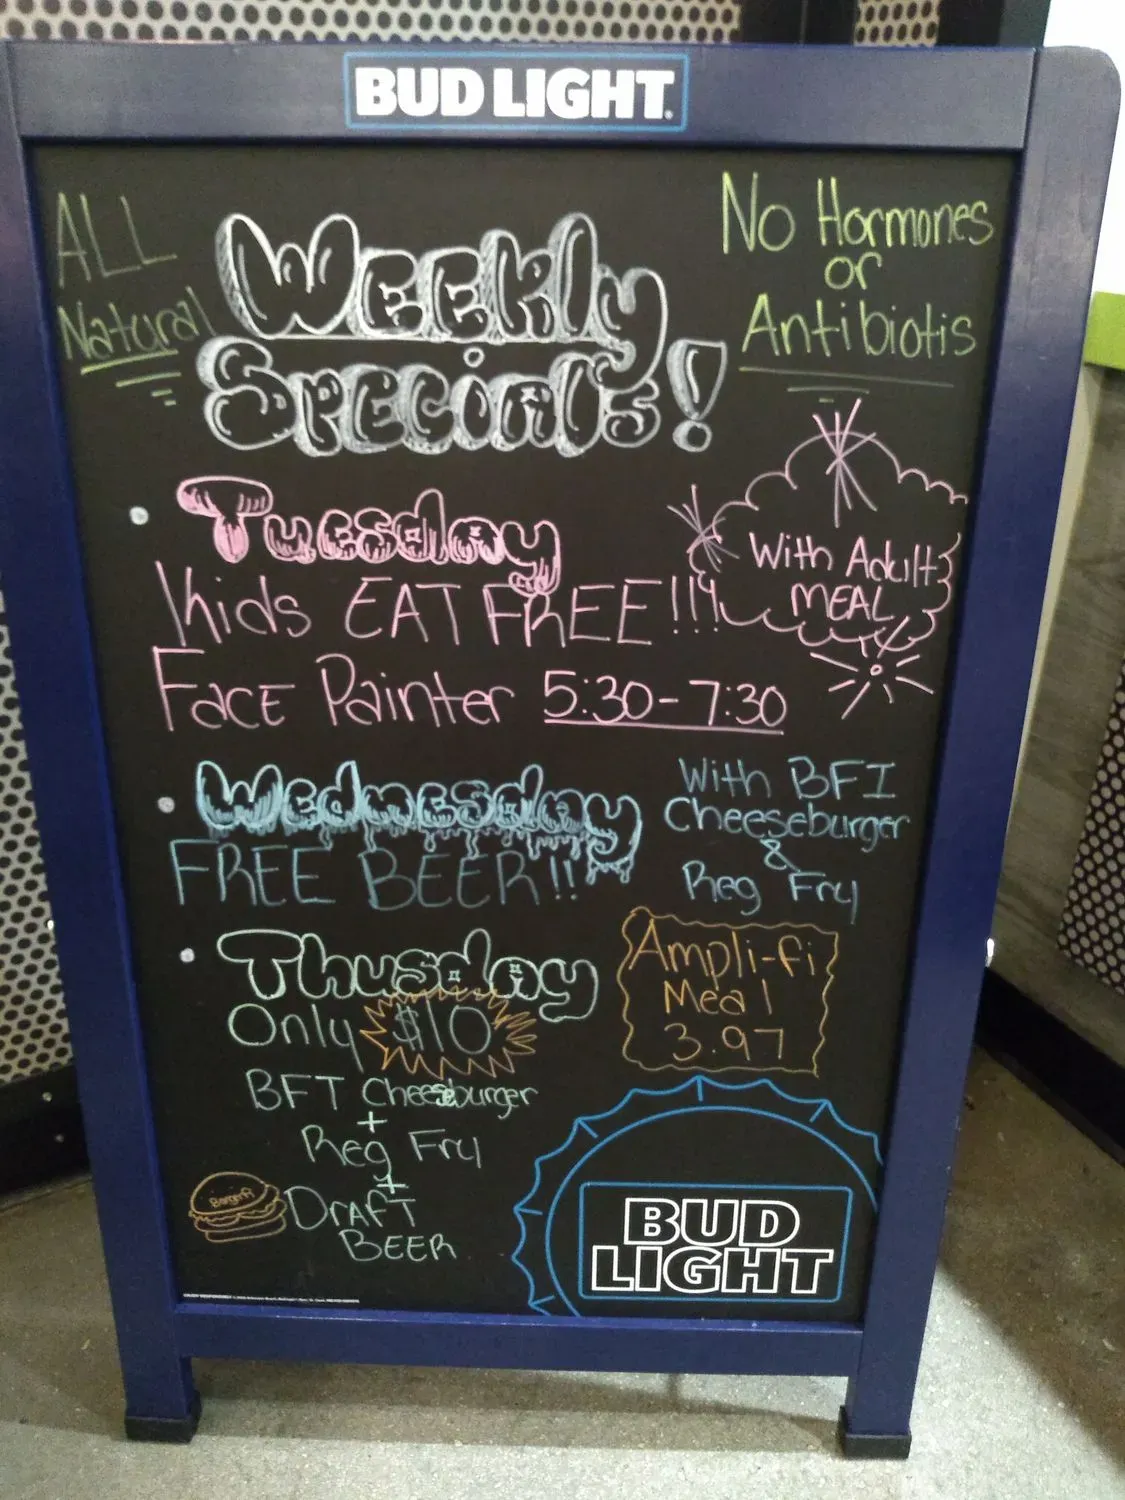 BUD LIGHT
ALL
Natural
Weekly
Specials!
No Hormones
or
Antibiotis
Tuesday
Kids EAT FREE!!!!
With Adult
MEAL
Face Painter 5:30-7:30
Wednesday
FREE BEER!!
With BFI
Cheeseburger
&
Reg Fry
Thusday
Only $10
BFT Cheeseburger
+
Reg Fry
+
DRAFT
BEER
Ampli-fi
Meal
3.97
BurgerFi
BUD
LIGHT